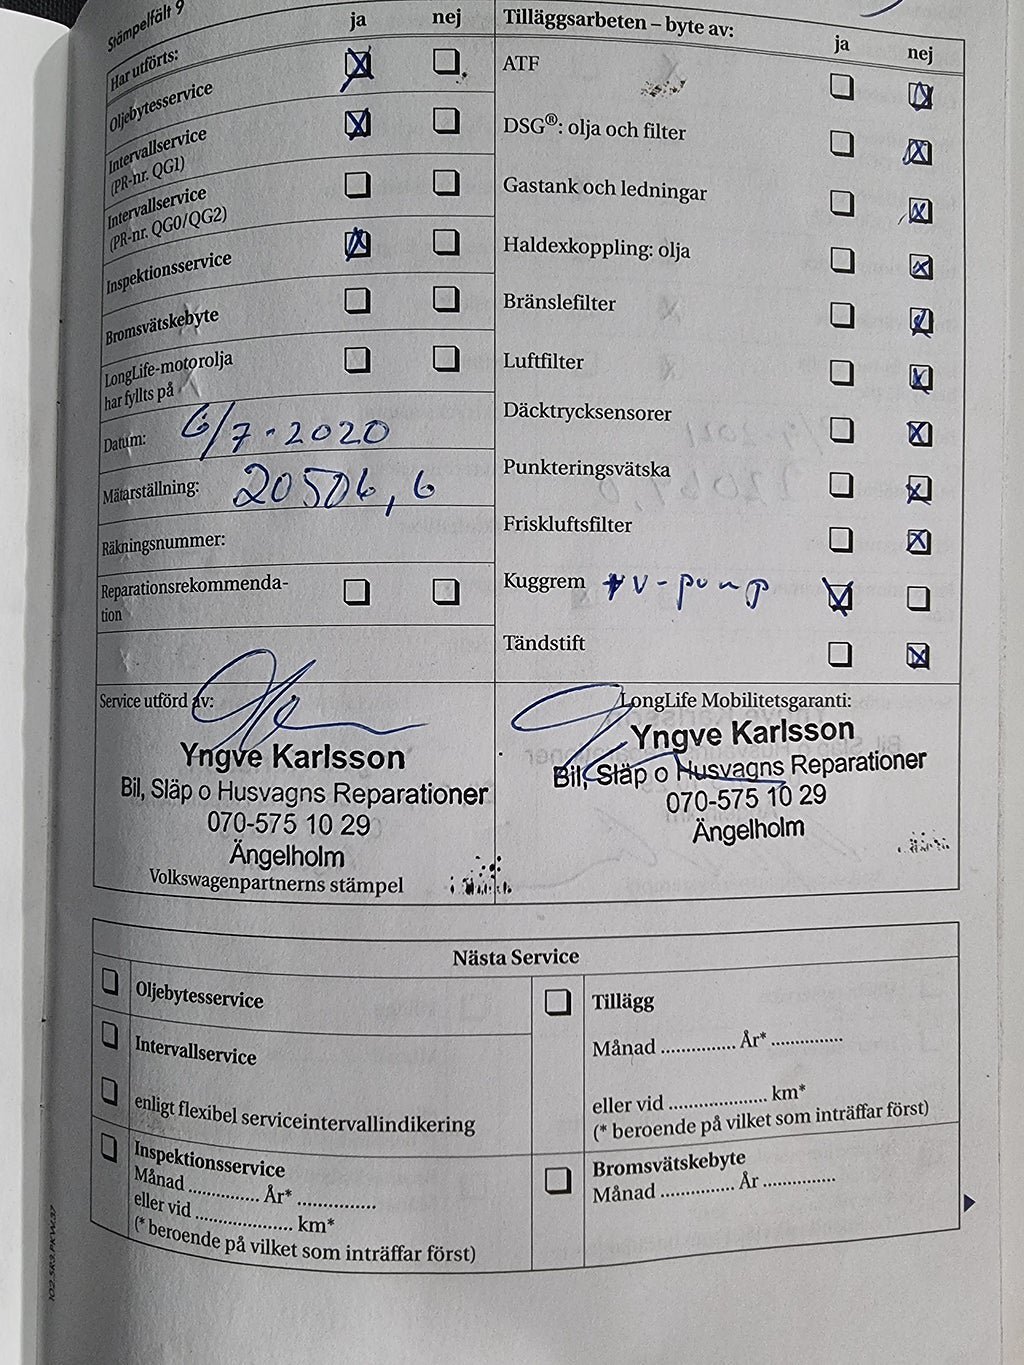 Stämpelfält 9
Har utförts: ja nej
Oljebytesservice
Intervallservice
(PR-nr. QG1)
Intervallservice
(PR-nr. QG0/QG2)
Inspektionsservice
Bromsvätskebyte
LongLife-motorolja
har fyllts på
Datum: 6/7-2020
Mätarställning: 20506,6
Räkningsnummer:
Reparationsrekommenda-
tion
Tilläggsarbeten – byte av: ja nej
ATF
DSG®: olja och filter
Gastank och ledningar
Haldexkoppling: olja
Bränslefilter
Luftfilter
Däcktrycksensorer
Punkteringsvätska
Friskluftsfilter
Kuggrem +v-pump
Tändstift
Service utförd av:
Yngve Karlsson
Bil, Släp o Husvagns Reparationer
070-575 10 29
Ängelholm
Volkswagenpartnerns stämpel
LongLife Mobilitetsgaranti:
Yngve Karlsson
Bil, Släp o Husvagns Reparationer
070-575 10 29
Ängelholm
Nästa Service
Oljebytesservice
Intervallservice
enligt flexibel serviceintervallindikering
Inspektionsservice
Månad .............. År* ................
eller vid .................... km*
(* beroende på vilket som inträffar först)
Tillägg
Månad ............... År* ...............
eller vid .................... km*
(* beroende på vilket som inträffar först)
Bromsvätskebyte
Månad ............... År ...............